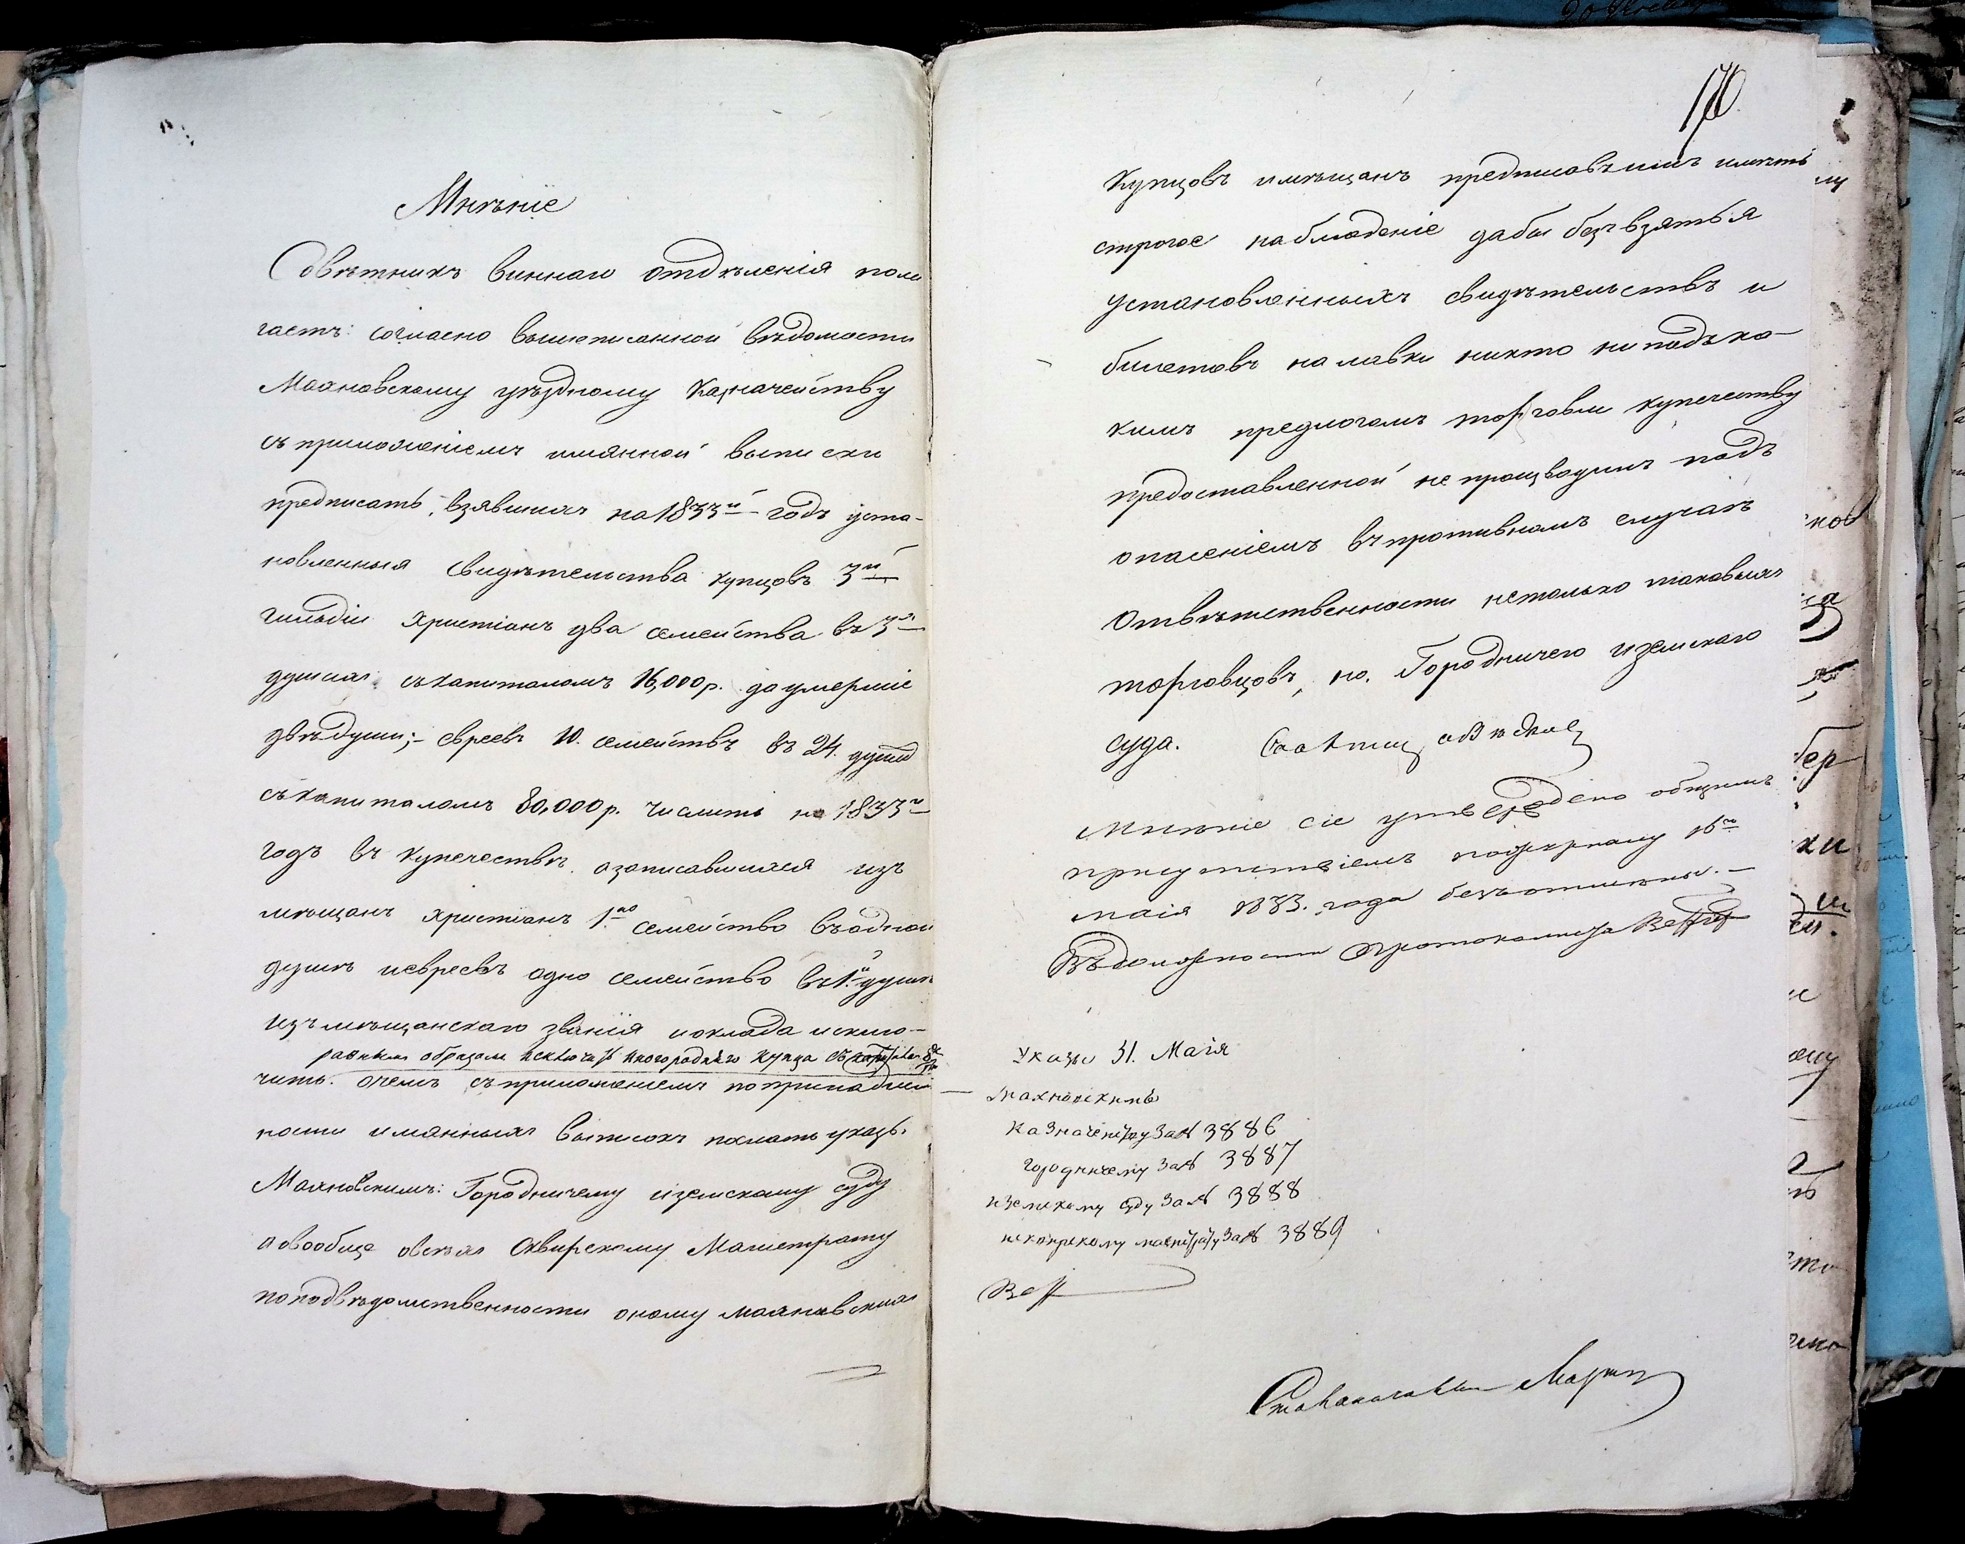 Мнѣніе
Совѣтникъ виннаго отдѣленія пола
гаетъ: согласно вышеписанной вѣдомости
Махновскому уѣздному Казначейству
съ приложеніемъ имянной выписки
предписать, взявшихъ на 1833й годъ уста-
новленныя свидѣтельства купцовъ 3й
гильдіи христіанъ два семейства въ 3х
душахъ съ капиталомъ 16,000 р. да умершіе
двѣ души; евреевъ 10. семействъ въ 24. душах
съ капиталомъ 80,000 р. числить на 1833й
годъ въ купечествѣ, а записавшихся изъ
мѣщанъ христіанъ 1но семейство въ одной
душѣ и евреевъ одно семейство въ 1й душѣ
изъ мѣщанскаго званія и оклада исклю-
равнымъ образомъ исключить иногороднего купца съ
чить. О чемъ съ приложеніемъ по принадлеж
ности имянныхъ выписокъ послать указы.
Махновскимъ: Городничему и земскому суду
а вообще о всѣхъ Сквирскому Магистрату
по подвѣдомственности оному махновскихъ
170.
Купцовъ и мѣщанъ предписавъ имъ имѣть
строгое наблюденіе дабы безъ взятья
установленныхъ свидѣтельствъ и
билетовъ на лавки никто ни подъ ка-
кимъ предлогомъ торговли купечеству
предоставленной не производилъ подъ
опасеніемъ въ противномъ случаѣ
отвѣтственности не только таковыхъ
торговцовъ, но. Городничего и земскаго
суда. Совѣтникъ
Мнѣніе сіе утверждено общимъ
присутствіемъ по журналу 16го
маія 1833. года безъ отмѣны. —
Въ должности Протоколиста
Указы 31. Маія
Махновскимъ
Казначейству За № 3886
городничему За № 3887
и земскому суду За № 3888
и сквирскому магистрату За № 3889